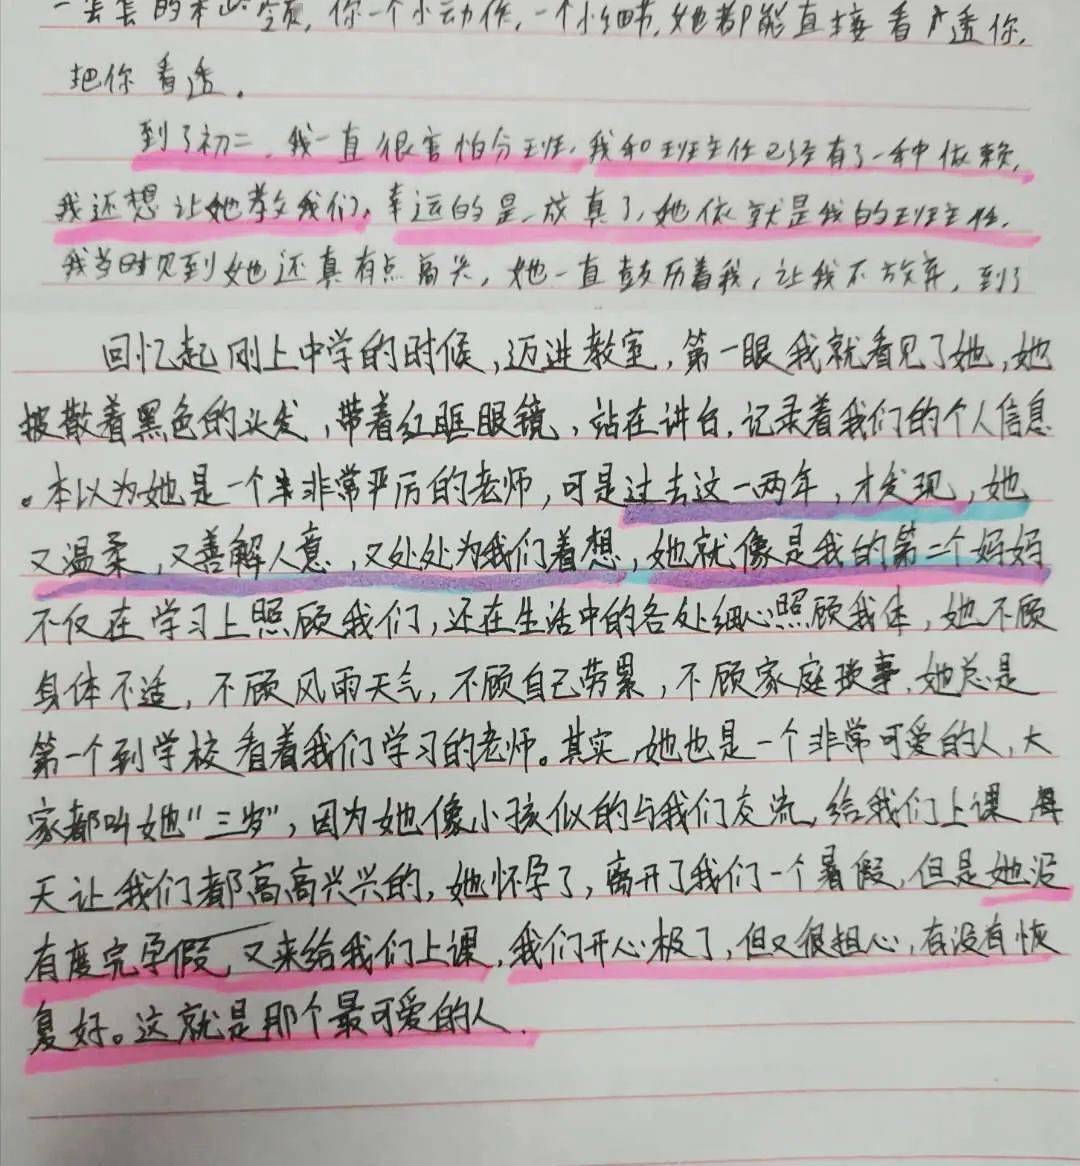 的本些空质,你一个小动作,一个小细节,她都能直接看透你,
把你看透。
到了初二,我一直很害怕分班,我和班主任已经有了一种依赖,
我还想让她教我们,幸运的是,放真了,她依就是我的班主任,
我当时见到她还真有点高兴,她一直鼓历着我,让我不放弃,到了
回忆起刚上中学的时候,迈进教室,第一眼我就看见了她,她
披散着黑色的头发,带着红眶眼镜,站在讲台,记录着我们的个人信息
。本以为她是一个非常严厉的老师,可是过去这一两年,才发现,她
又温柔,又善解人意,又处处为我们着想,她就像是我的第二个妈妈
不仅在学习上照顾我们,还在生活中的各处细心照顾我体,她不顾
身体不适,不顾风雨天气,不顾自己劳累,不顾家庭琐事,她总是
第一个到学校看着我们学习的老师。其实,她也是一个非常可爱的人,大
家都叫她"三岁",因为她像小孩似的与我们交流,给我们上课每
天让我们都高高兴兴的,她怀孕了,离开了我们一个暑假,但是她没
有度完孕假,又来给我们上课,我们开心极了,但又很担心,有没有恢
复好。这就是那个最可爱的人.